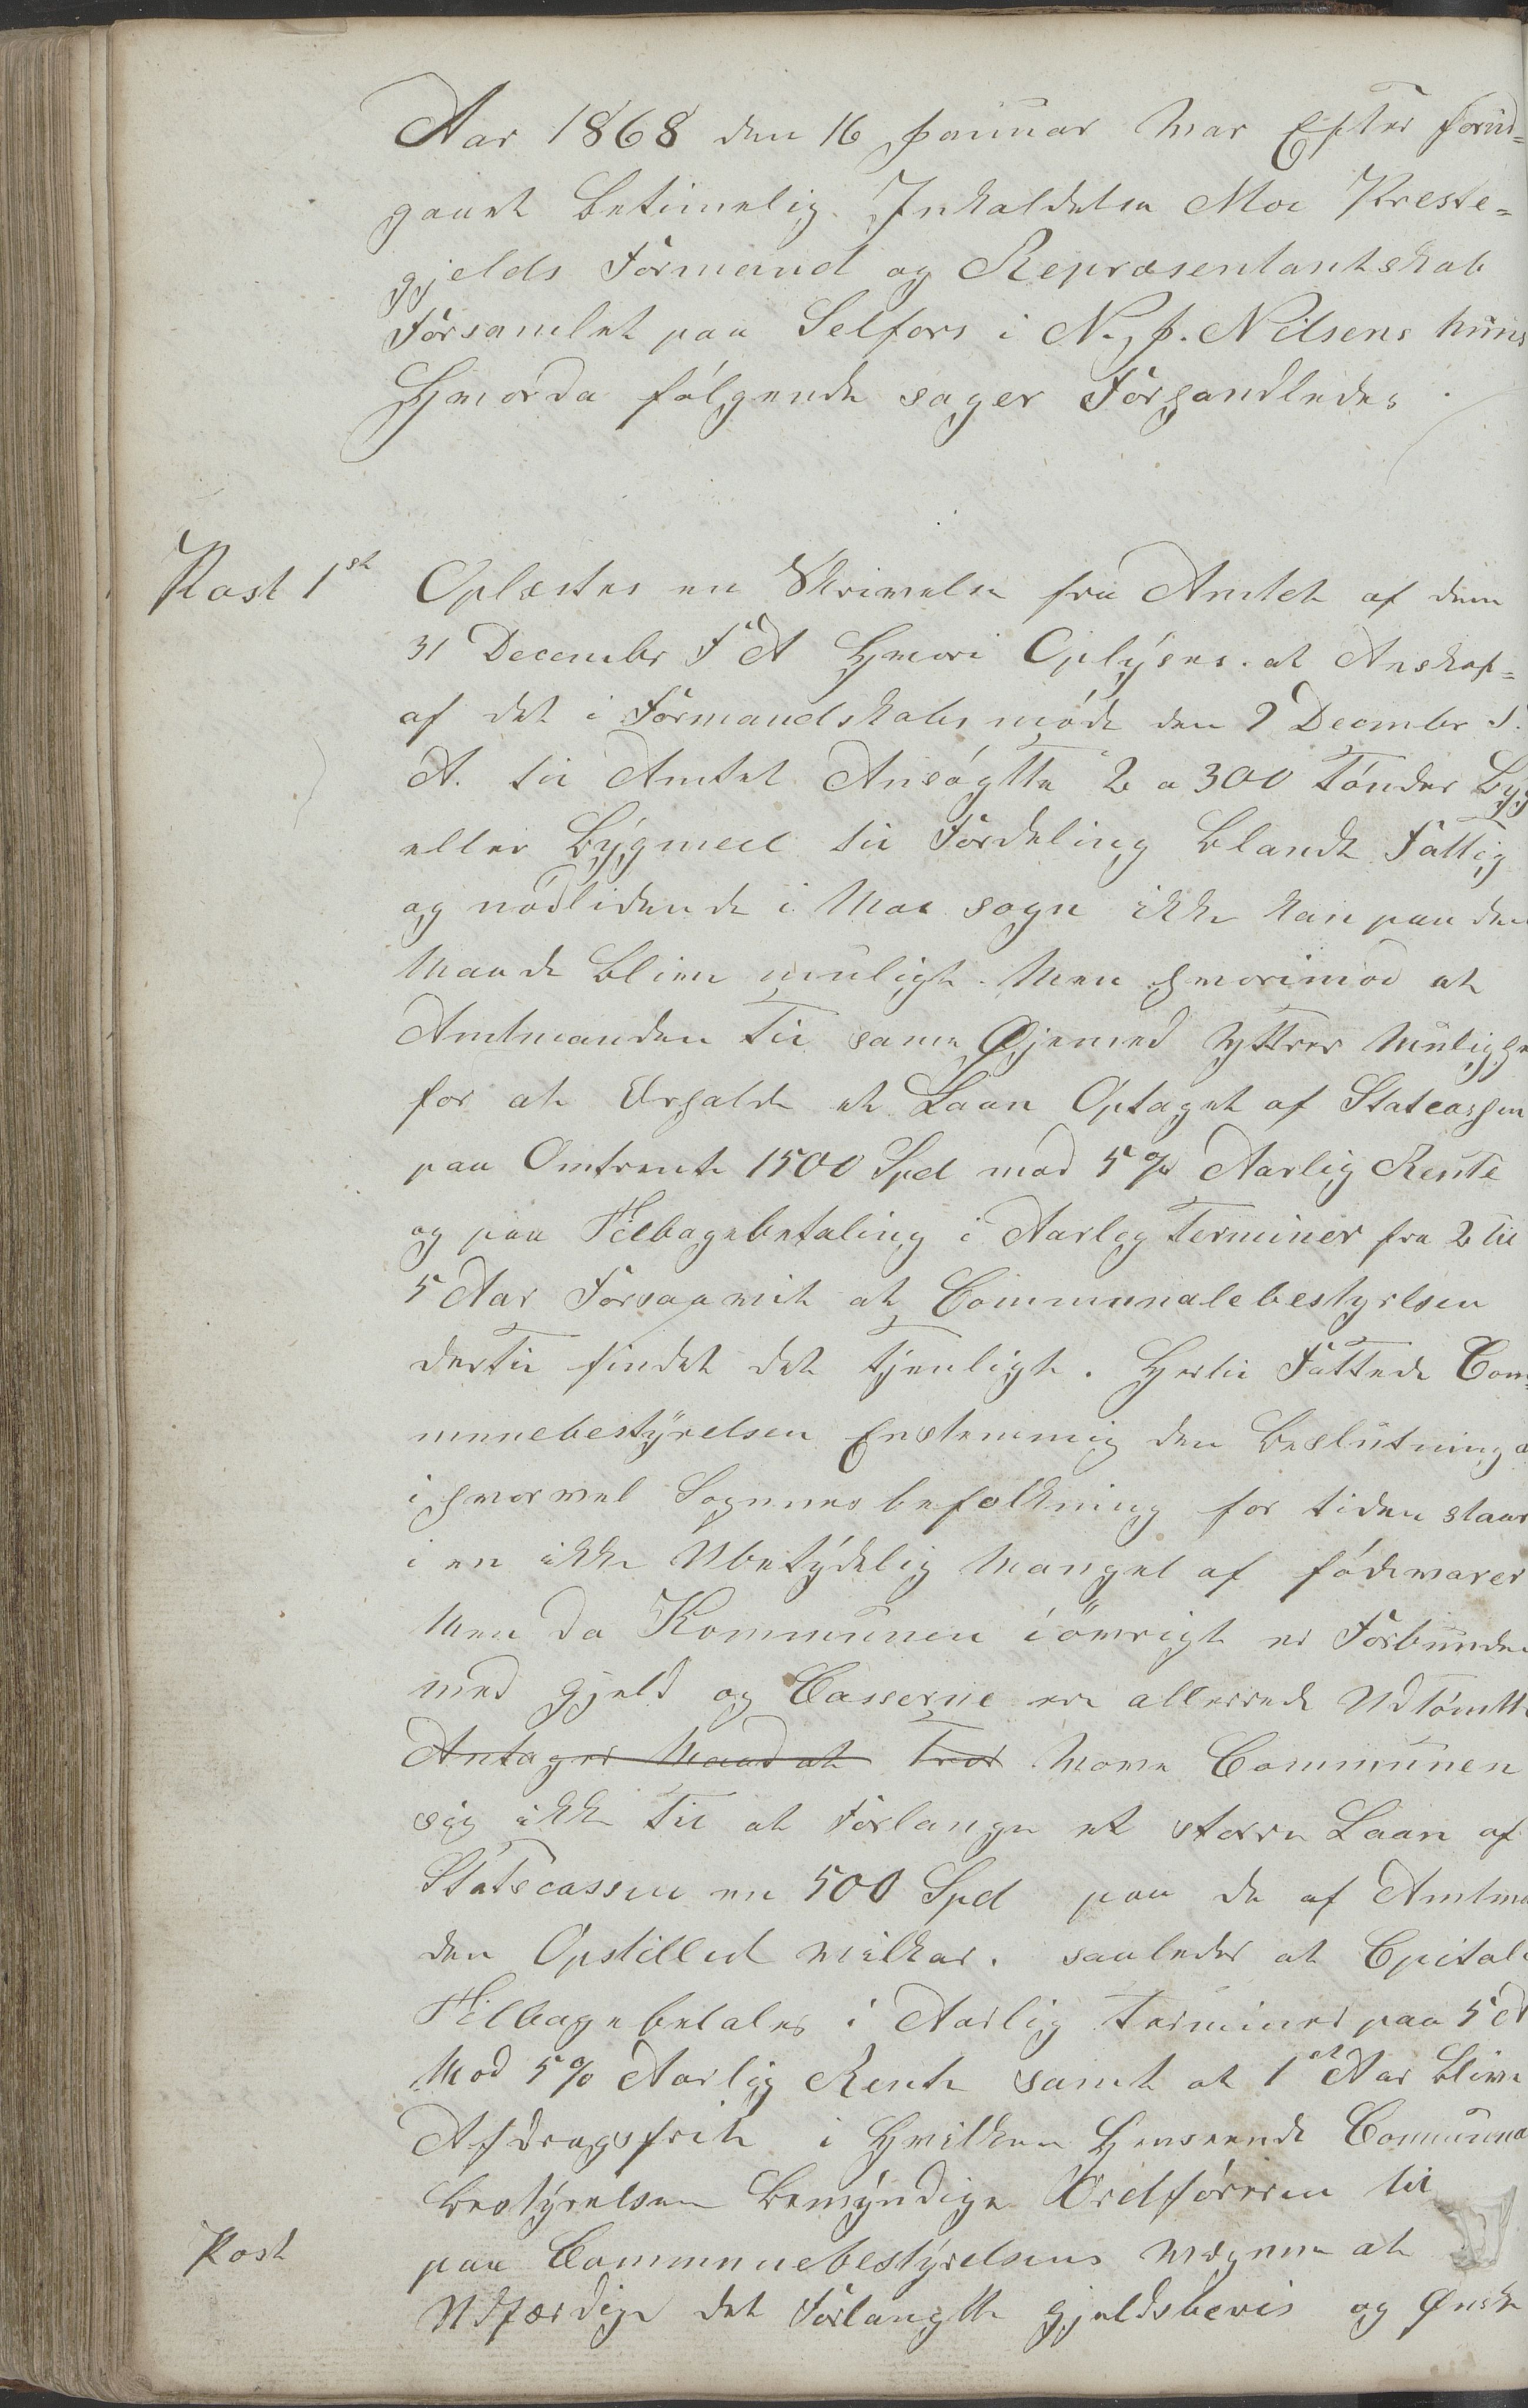 Aar 1868 den 16 Januar var Efter forud-
gaaet betimelig Inkaldelse Moe Præste-
gjelds Formand og Repræsentantskab
Forsamlet paa Selfors i N. J. Nilsens huus
Hvorda følgende sager Forhandledes.
Post 1st Oplæstes en Skrivelse fra Amtet af dem
31 Decembr F A Hvori Oplyses at Anskaf-
af det i Formandskabs møde den 9 Decembr F.
A. til Amtet Ansøgtte 2 a 300 Tønder Byg
eller Bygmeel til Fordeling blandt Fattig
og nødlidende i Moe sogn ikke kan paa den
Maade blive muligt. Men hvorimod at
Amtmanden til same Øjemed yttrer Mulighe
for at Erholde et Laan Optaget af Statcassen
paa Omtrent 1500 Spd mod 5 % Aarlig Rente
og paa Tilbagebetaling i Aarlig Terminer fra 2 til
5 Aar Forsaavit at Communalebestyrlsen
dertil findet det tjenligt. Hertil Fattede Com-
munebestyrelsen Enstemmig den Beslutning a
i hvorvel Sognnes befolkning for tiden staar
i en ikke Ubetydelig Mangel af fødevarer
Men da Kommunen iøvrigt er Forbunden
med gjeld og Casserne ere allerede Udtømtte
Antager Maadat tror vove Communen
sig ikke til at Forlange et større Laan af
Statscassen en 500 Spd paa de af Amtma
den Opstilled vilkar. saaledes at Cpitale
Tilbagebetales i Aarlig terminer paa 5 A
Mod 5 % Aarlig Rente samt at 1st Aar blive
Afdragsfrit i Hvilken Henseende Communa
bestyrelsen bemyndige Ordføreren til
Post paa Communebestyrelsens vægnne at
Udfærdige det Forlangtte gjeldsbevis og Ønske